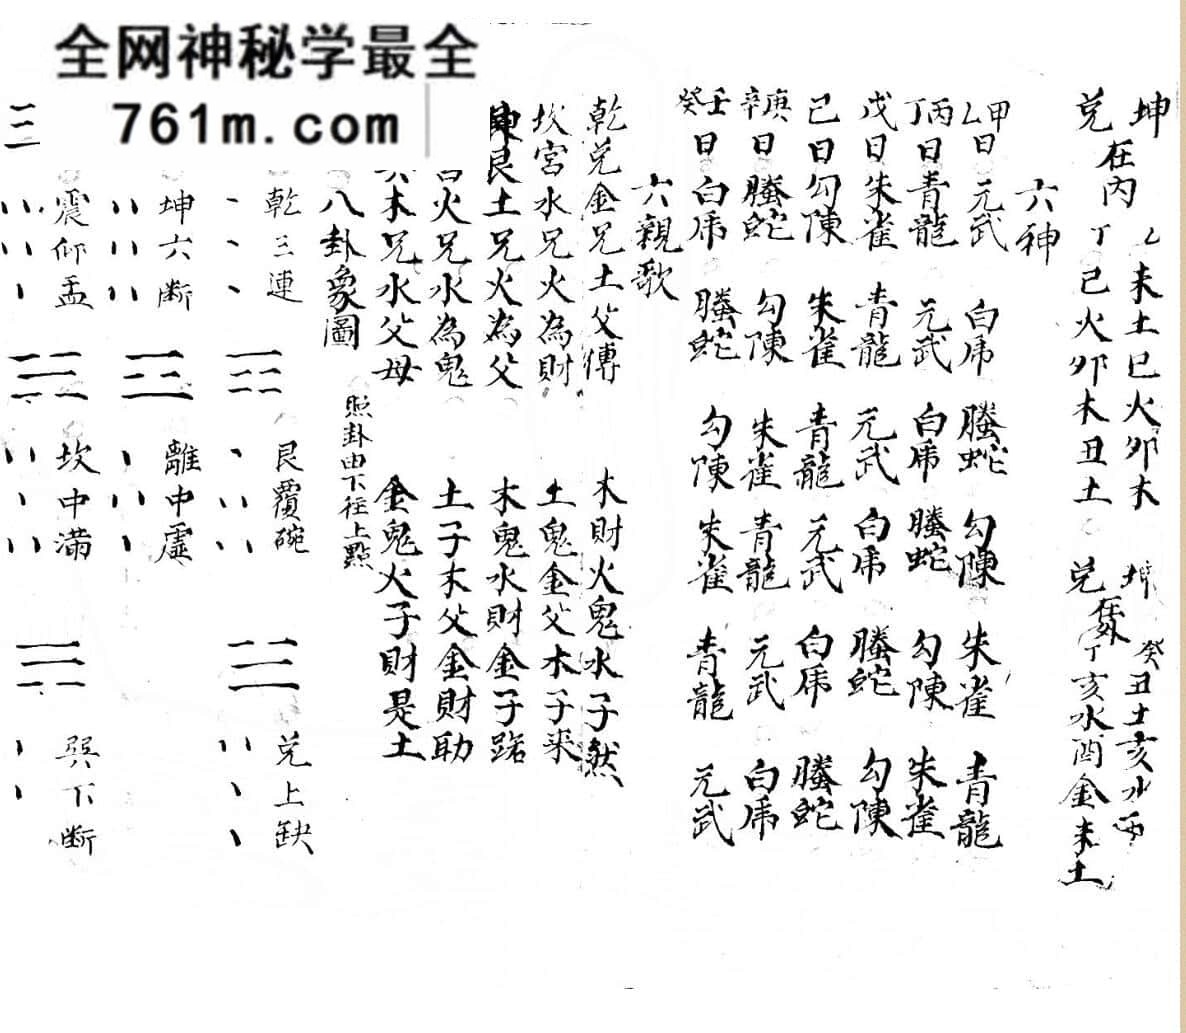 全网神秘学最全
761m.com
坤在内 乙未土巳火卯木 坤在外 癸丑土亥水酉
兑 丁己火卯木丑土 兑 丁亥水酉金未土
六神
甲乙日 元武 白虎 螣蛇 勾陳 朱雀 青龍
丙丁日 青龍 元武 白虎 螣蛇 勾陳 朱雀
戊日 朱雀 青龍 元武 白虎 螣蛇 勾陳
己日 勾陳 朱雀 青龍 元武 白虎 螣蛇
庚辛日 螣蛇 勾陳 朱雀 青龍 元武 白虎
壬癸日 白虎 螣蛇 勾陳 朱雀 青龍 元武
六親歌
乾兑金兄土父傳 木財火鬼水子然
坎宮水兄火為財 土鬼金父木子來
艮土兄火為父 木鬼水財金子路
宮火兄水為鬼 土子木父金財助
木兄水父母 金鬼火子財是土
八卦象圖 照卦由下往上點
乾三連 艮覆碗 兑上缺
坤六断 離中虛
震仰盂 坎中滿 巽下断